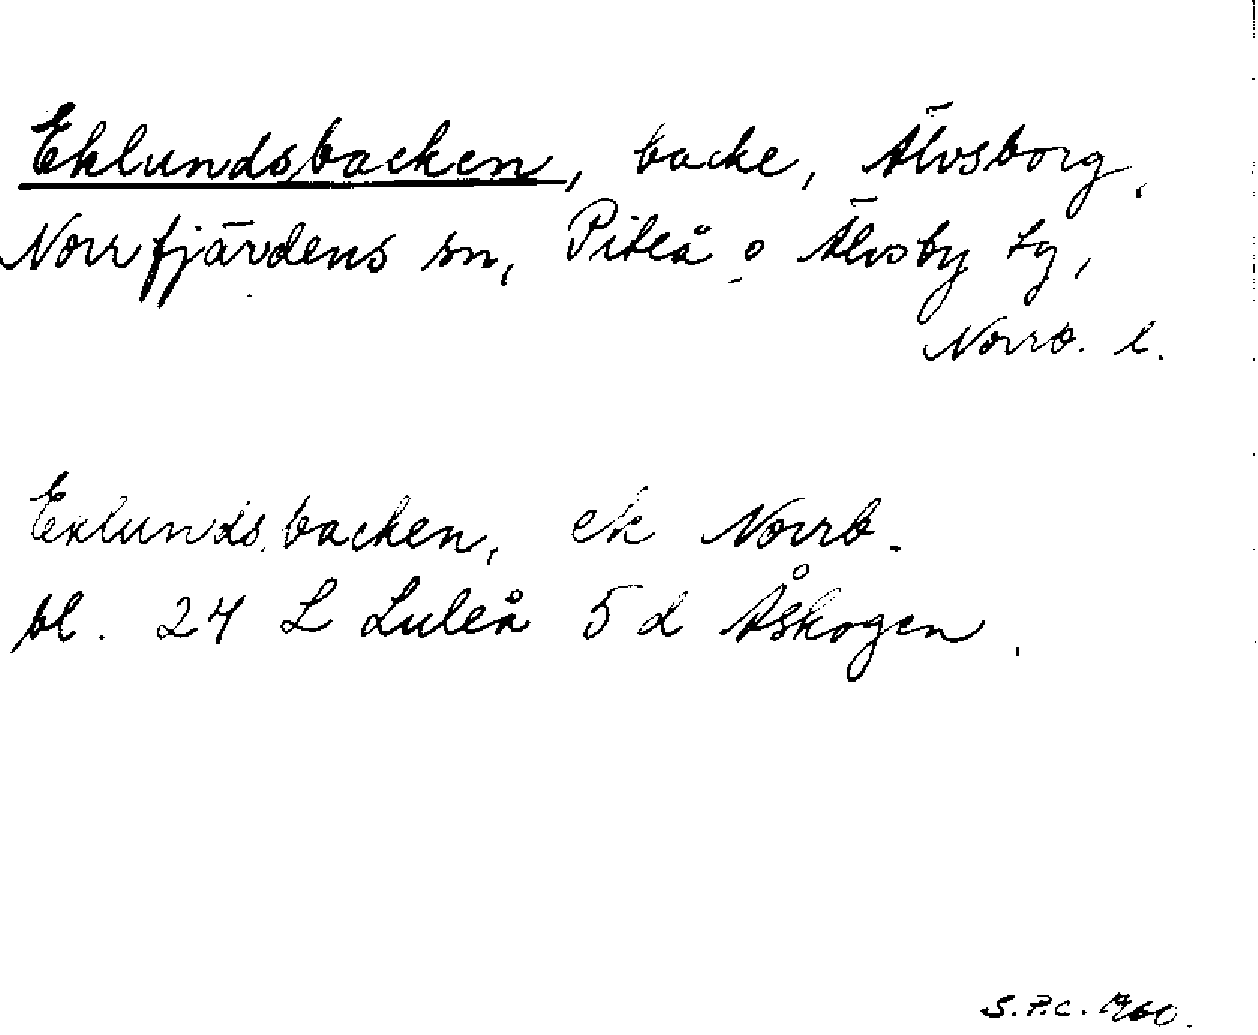 Eklundsbacken, backe, Älvsborg,
Norrfjärdens sn, Piteå o Älvsby tg,
Norrb. l.
Eklundsbacken, ek Norrb.
bl. 24 L Luleå 5 d Åskogen.
S.P.C. 1960.